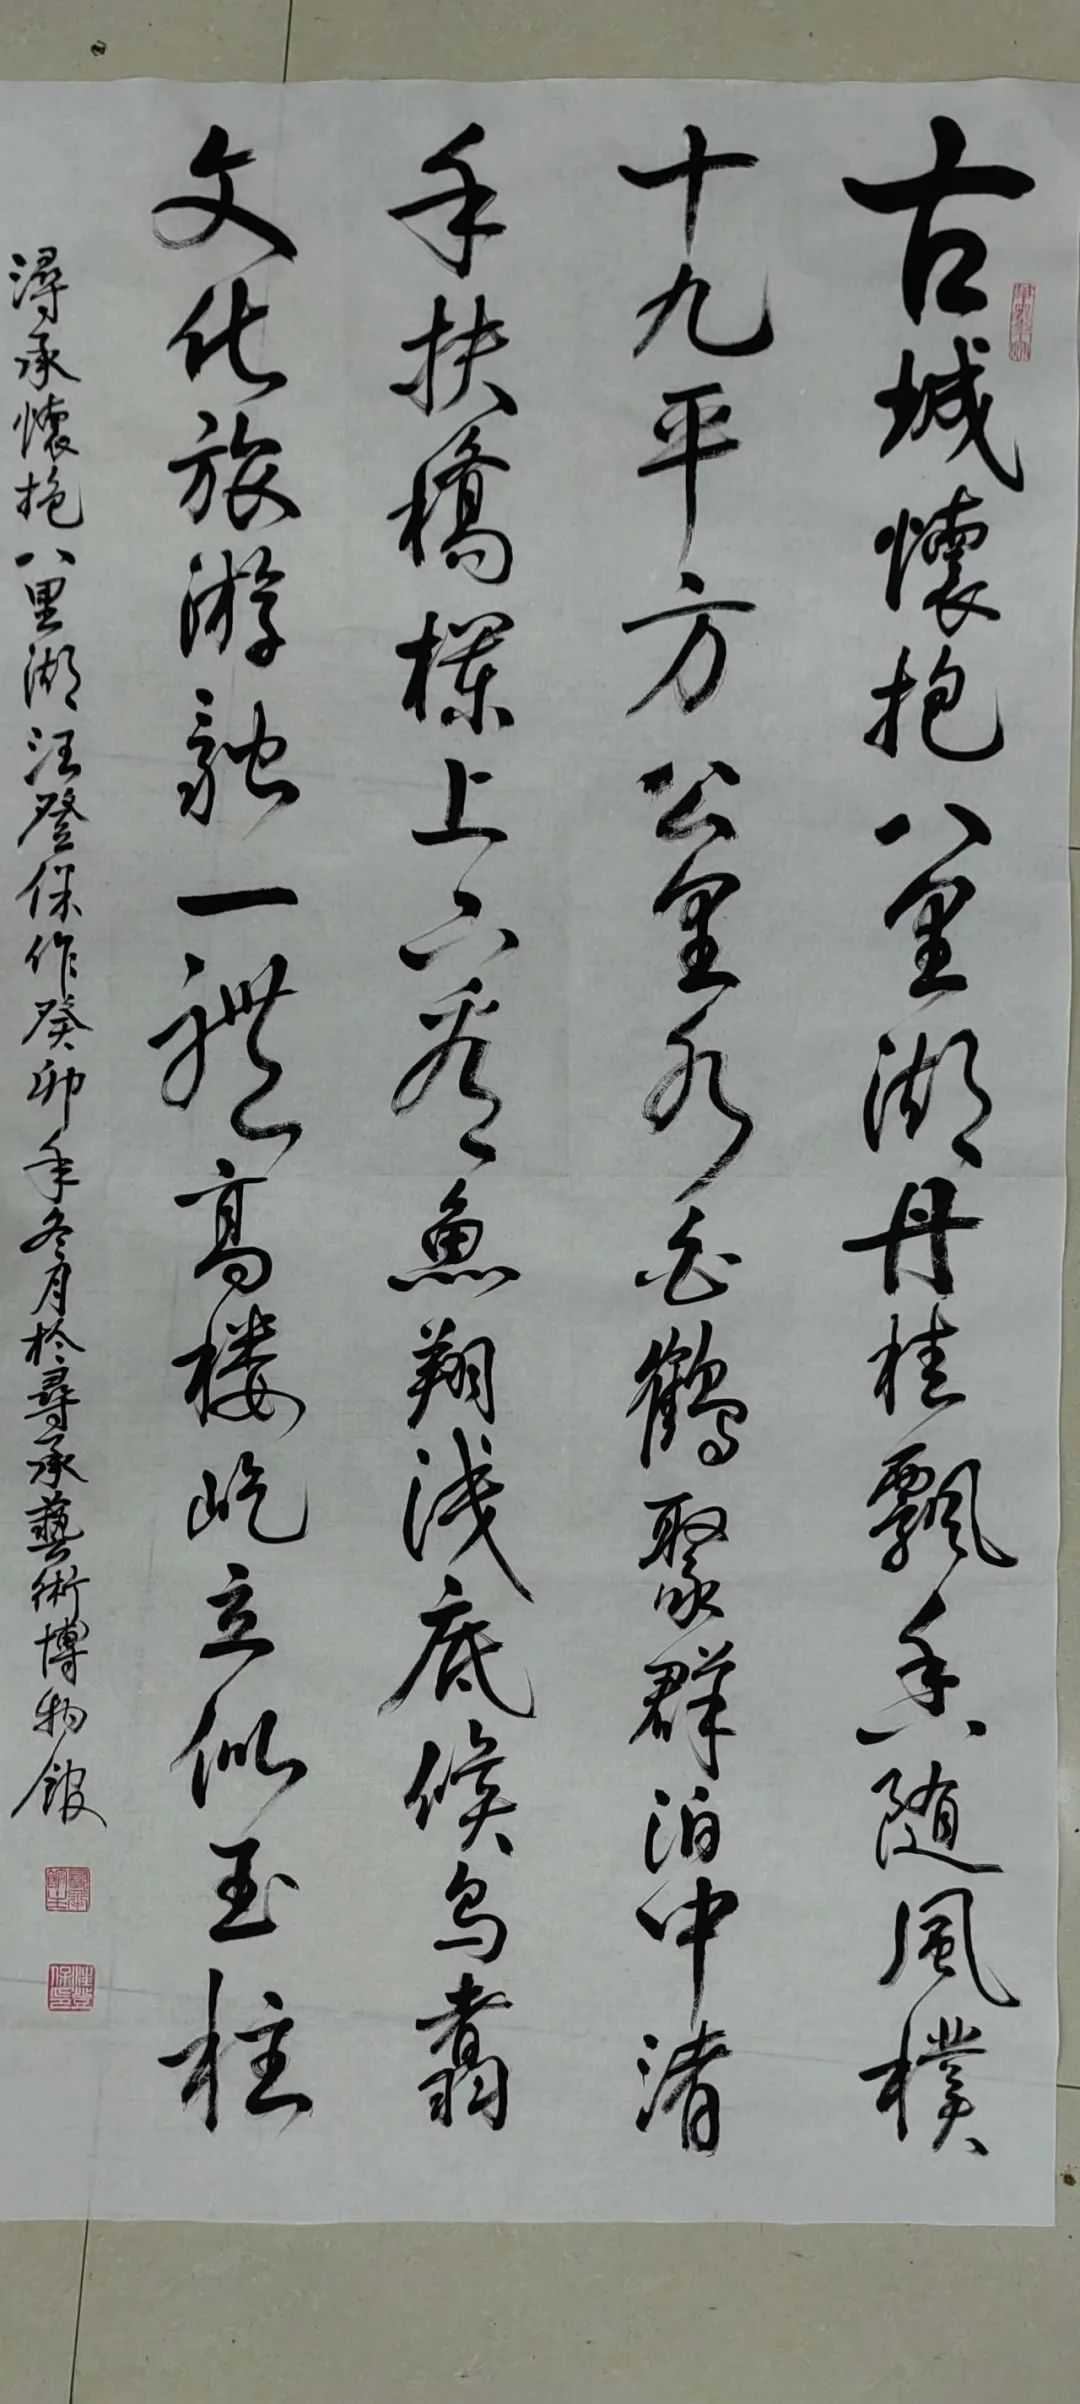 古城懷抱八里湖丹桂飄香随風樸
十九平方公里水白鶴聚群泊中渚
手扶橋欄上下看魚翔浅底候鸟翥
文化旅游融一體高楼屹立似玉柱
潯承懷抱八里湖汪登保作癸卯年冬月於尋承藝術博物館
汪登保印